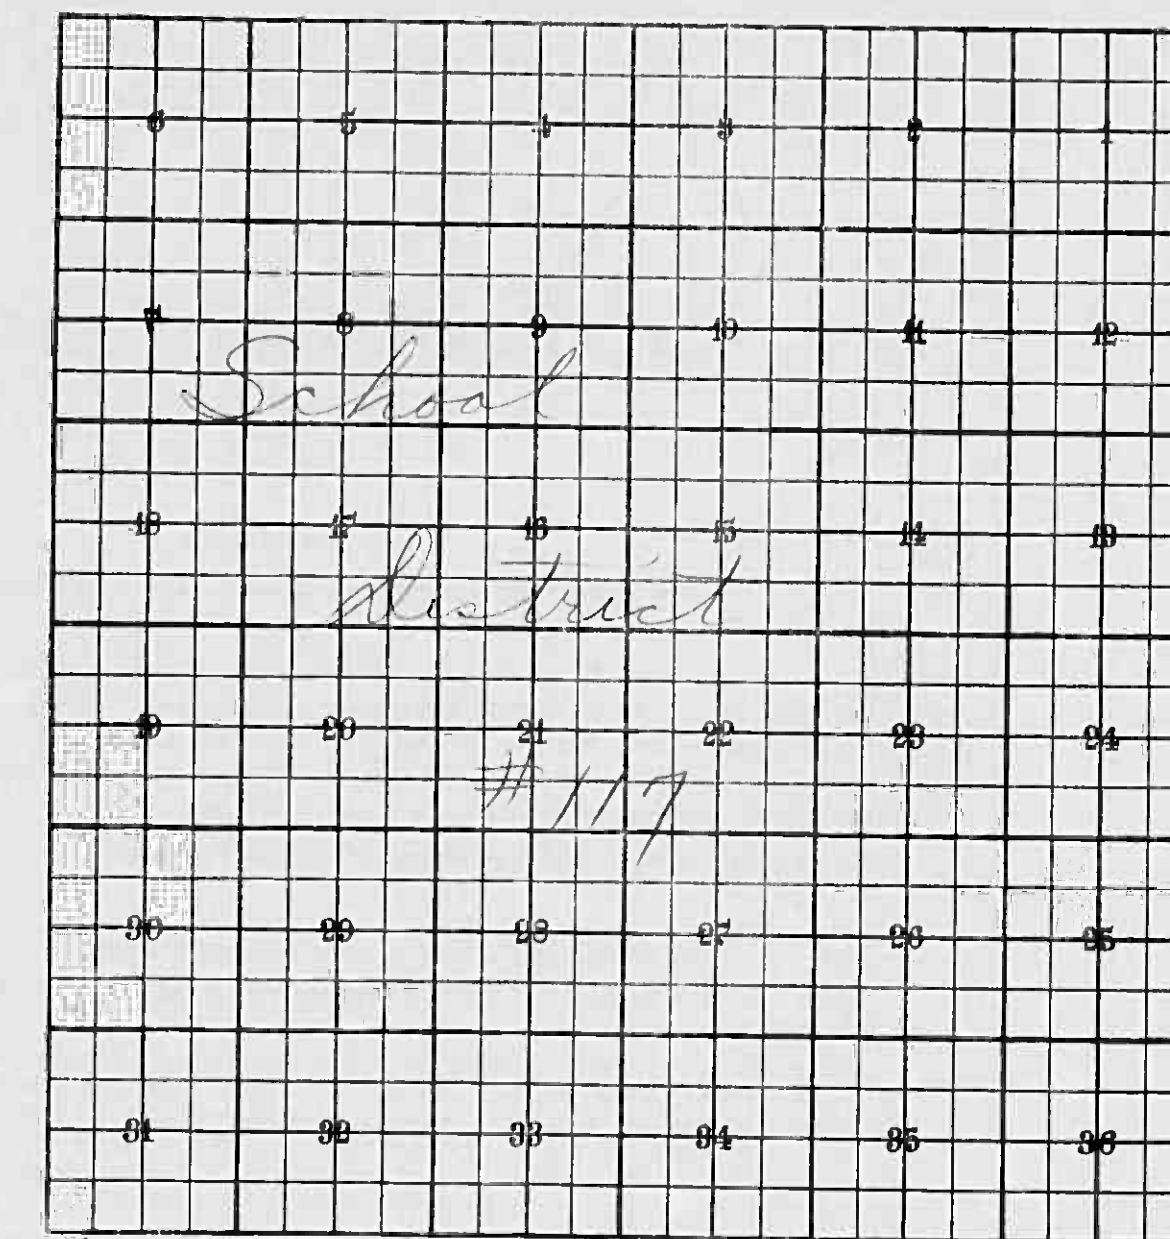 6 5 4 3 2 1
7 8 9 10 11 12
School
18 17 16 15 14 13
District
19 20 21 22 23 24
# 117
30 29 28 27 26 25
31 32 33 34 35 36